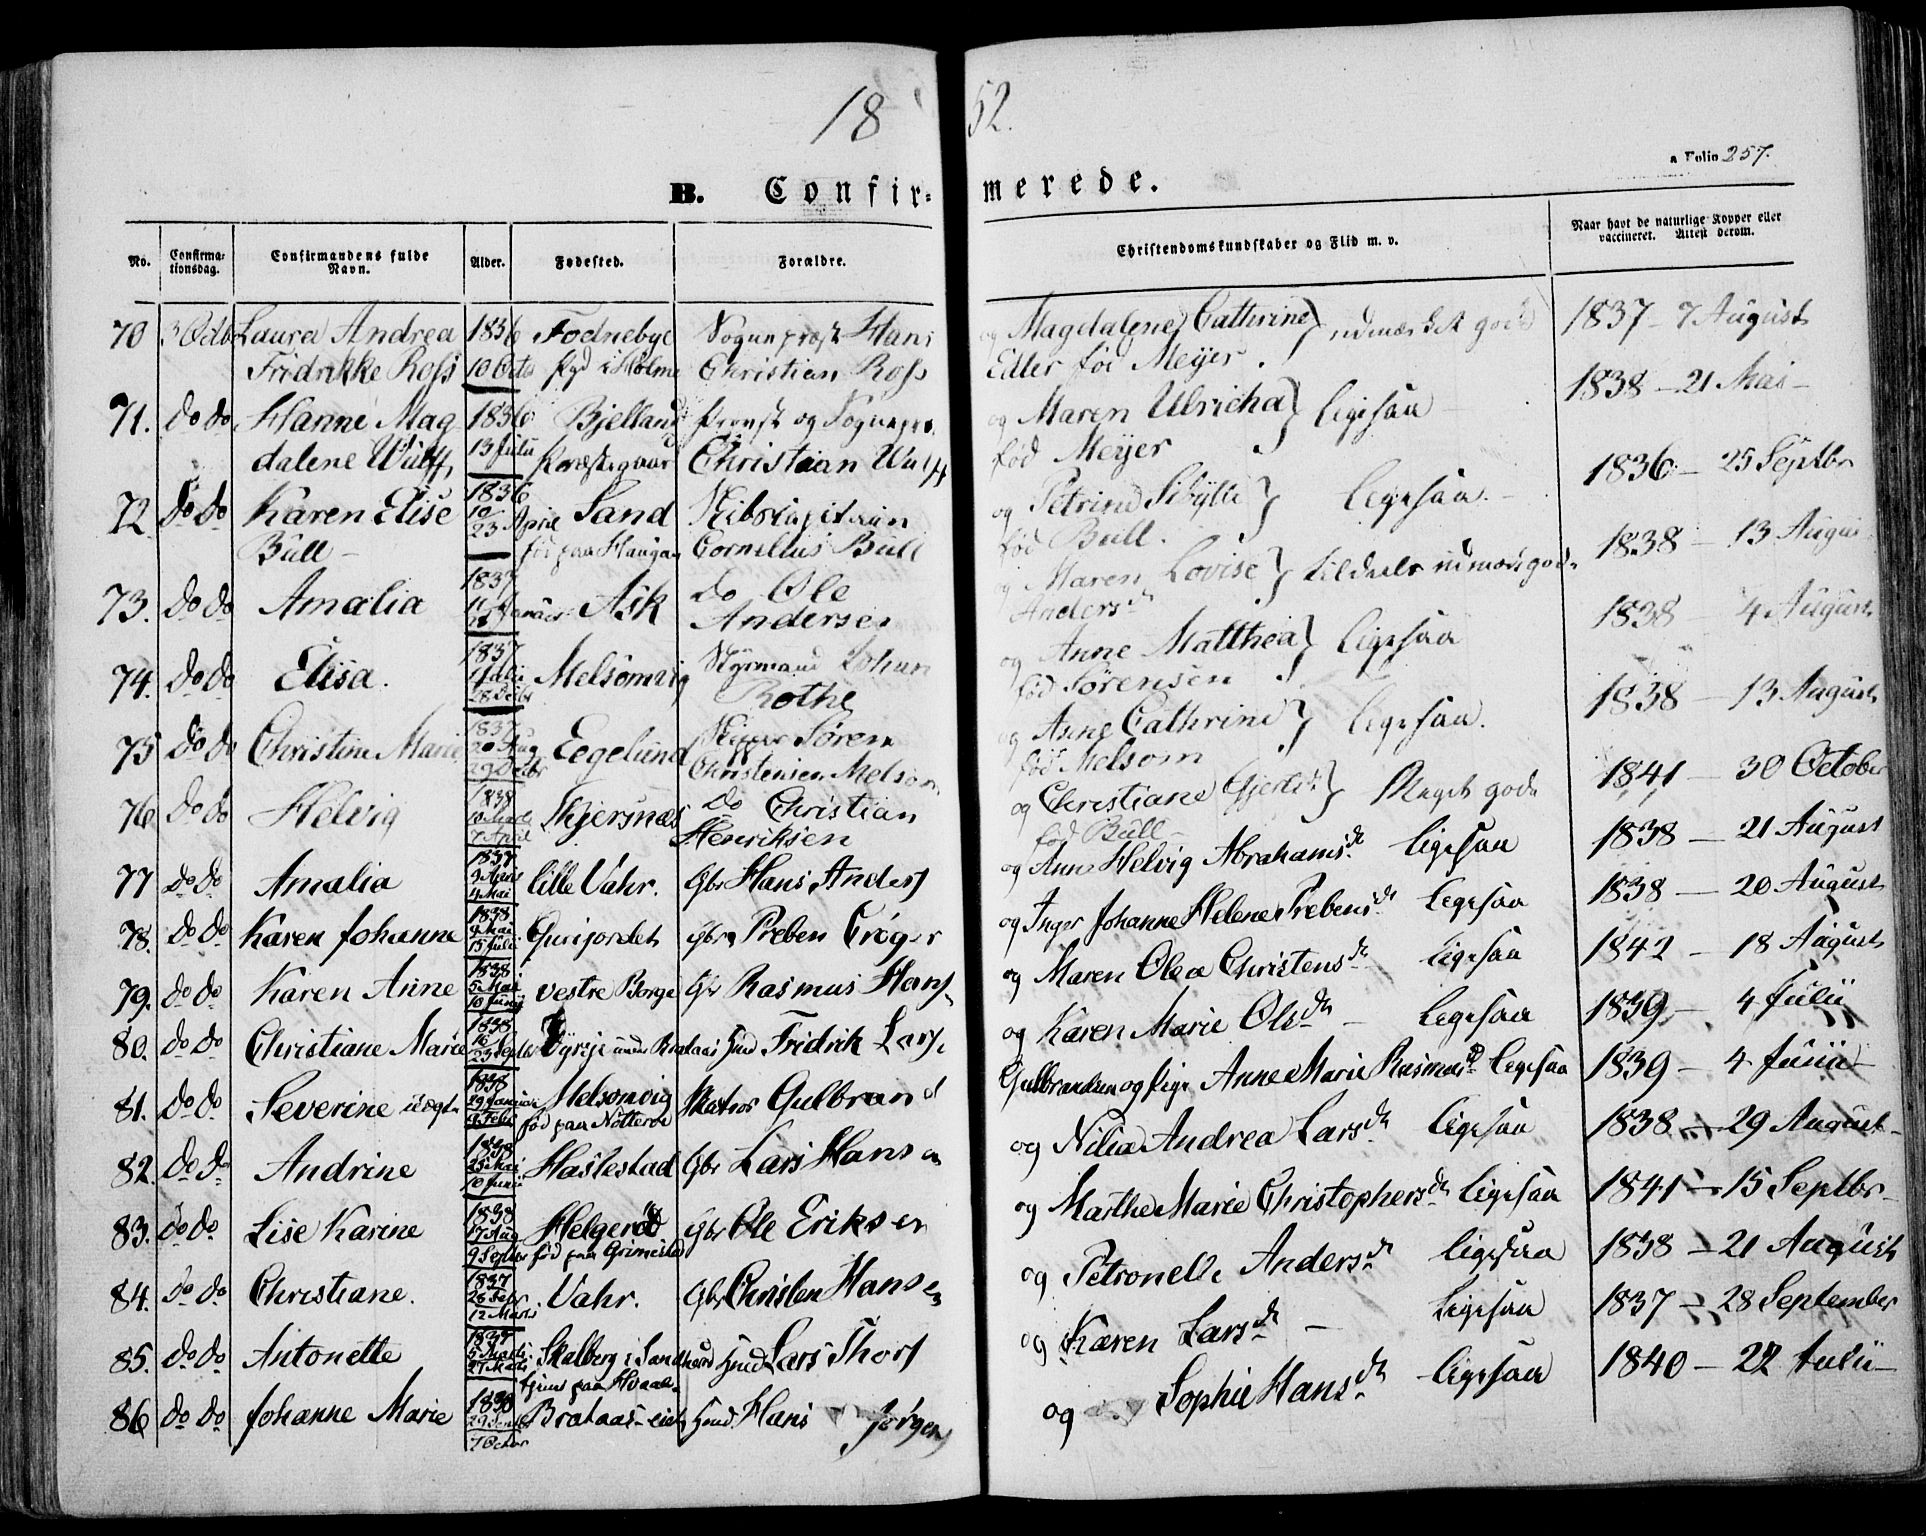 18 52.
a Folio 257.
B. Confir= merede.
No. Confirma-tionsdag. Confirmandens fulde Navn. Alder. Fødested. Forældre. Christendomskundskaber og Flid m. v. Naar havt de naturlige Kopper eller vaccineret. Attest derom.
70 3 Octb Laura Andrea 1836 Fodnebye Sognepræst Hans og Magdalene Cathrine } udmærket godt 1837 - 7 August
Fridrikke Ross 10 Octb Pgd i Holme Christian Ross Edler fød Meyer.
71. do do Hanne Mag 1836 Bjelland Provst og Sognepr. og Maren Ulricha } ligesaa 1838 - 21 Mai -
dalene Wulff, 13 Juli Præstegaard Christian Wulff fød Meyer
72 do do Karen Elise 1836 10/23 April Sand Skibscapitain og Petrine Sibylle } ligesaa. 1836 - 25 Septbr
Bull - fød paa Haugan Cornelius Bull fød Bull.
73. do do Amalia 1837 Ask do Ole og Maren Lovise } tildeels udmærk god 1838 - 13 August
Andersen Anders dt
74. do do Elisa. 1837 Melsomvig Styrmand Johan og Anne Matthea } ligesaa 1838 - 4 August
Rothe fød Sørensen
75 do do Christine Marie 1837 20 Aug 29 Octbr Eegelund Skipper Søren og Anne Cathrine } ligesaa. 1838 - 13 August
Christensen Melsom fød Melsom
76 do do Helvig 1838 7 April Skjersnæs do Christian og Christiane Gjert dt } Meget god 1841 - 30 October
Henriksen fød Bull -
77 do do Amalia 1838 4 Mai lille Vahr. Gbr Hans Anders og Anne Helvig Abrahams dt ligesaa 1838 - 21 August
78. do do Karen Johanne 1838 4 Mai 15 Juli Gurijordet Gbr Preben Crøger og Inger Johanne Helene Prebens dt ligesaa 1838 - 20 August
79. do do Karen Anne 1838 5 Mai 10 Juni vestre Borge Gbr Rasmus Hans og Maren Olea Christens dt ligesaa 1842 - 18 August
80. do do Christiane Marie 1838 23 Septbr under Brataas Hmd Fridrik Lars. og Karen Marie Ols dt - ligesaa 1839 - 4 Julii
81. do do Severine uægte 1838 29 Januar Melsomvig Matros Gulbrand Gulbrandsen og Pige Anne Marie Rasmus dt ligesaa 1839 - 4 Junii -
fød paa Nøtterøe
82. do do Andrine 1838 25 Mai 10 Juni Haslestad Gbr Lars Hansen og Nilia Andrea Lars dt ligesaa 1838 - 29 August -
83. do do Lise Karine 1838 17 Aug 9 Septbr Helgerød Gbr Ole Eriksen og Marthe Marie Christophers dt ligesaa 1841 - 15 Septbr -
fød paa Grimestad
84. do do Christiane. 1837 26 Febr 12 Marts Vahr. Gbr Christen Hansen og Petronelle Anders dt ligesaa 1838 - 21 August
85. do do Antonette 5 Marts Skalberg i Sandherred Hmd Lars Thors og Karen Lars dt - ligesaa 1837 - 28 September
tjener paa Hvaal.
86 do do Johanne Marie 1838 7 Octbr Brataas-eiet Hmd. Hans Jørgens og Sophie Hans dt ligesaa 1840 - 22 Julii -